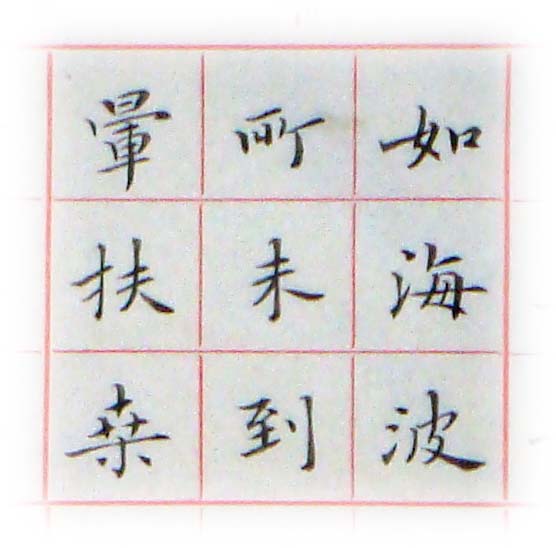 如海波
所未到
暈扶桒